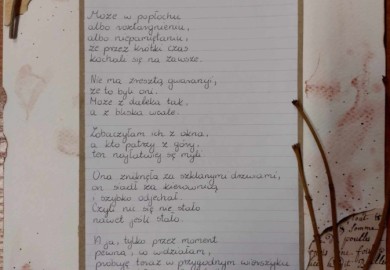 Może w popłochu
albo roztargnieniu,
albo niepamiętaniu,
że przez krótki czas
kochali się na zawsze.
Nie ma zresztą gwarancji,
że to byli oni.
Może z daleka tak,
a z bliska wcale.
Zobaczyłam ich z okna,
a kto patrzy z góry,
ten najłatwiej się myli.
Ona zniknęła za szklanymi drzwiami,
on siadł za kierownicą
i szybko odjechał.
Czyli nic się nie stało
nawet jeśli stało.
A ja, tylko przez moment
pewna, co widziałam,
próbuję teraz w przygodnym wierszyku